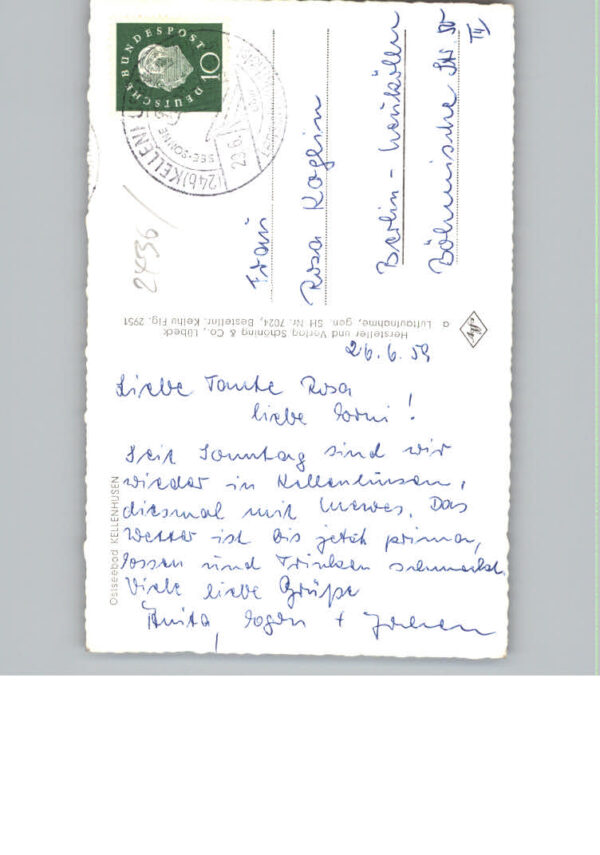 DEUTSCHE BUNDESPOST
10
(24b)KELLENH
SEE·SONNE
Frau
Rosa Koglin
Berlin-Neukölln
Böhmische Str. 50
III
Hersteller und Verlag Schöning & Co., Lübeck
a Luftaufnahme, gen. SH Nr. 7024, Bestellnr. Kelhu Flg. 2951
Ostseebad KELLENHUSEN
26.6.59
Liebe Tante Rosa
liebe Erni!
Seit Sonntag sind wir
wieder in Kellenhusen,
diesmal mit Mewes. Das
Wetter ist bis jetzt prima,
Essen und Trinken schmeckt.
Viele liebe Grüße
Anita, Egon + Jochen